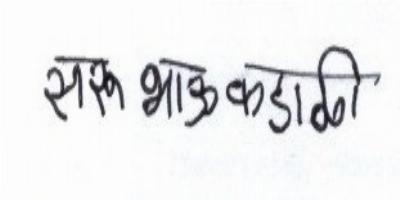 सरू भाऊ कडाळी